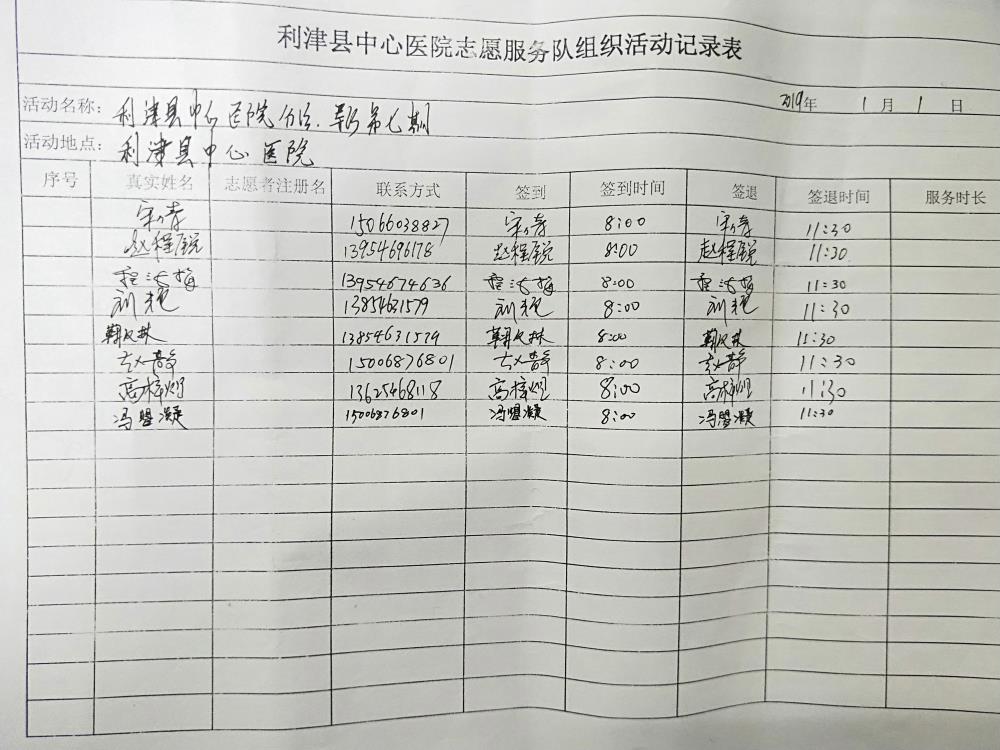 利津县中心医院志愿服务队组织活动记录表
活动名称: 利津县中心医院分诊、导诊第七期 2019年 1月 1日
活动地点: 利津县中心医院
序号 真实姓名 志愿者注册名 联系方式 签到 签到时间 签退 签退时间 服务时长
15066038827 8:00 11:30
赵程锐 13954696178 赵程锐 8:00 赵程锐 11:30
程洪梅 13954674636 程洪梅 8:00 程洪梅 11:30
刘艳 13854631579 刘艳 8:00 刘艳 11:30
13854631579 8:00 11:30
赵静 15006876801 赵静 8:00 赵静 11:30
高梓烟 13625468118 高梓烟 8:00 高梓烟 11:30
冯盟凝 15006876801 冯盟凝 8:00 冯盟凝 11:30